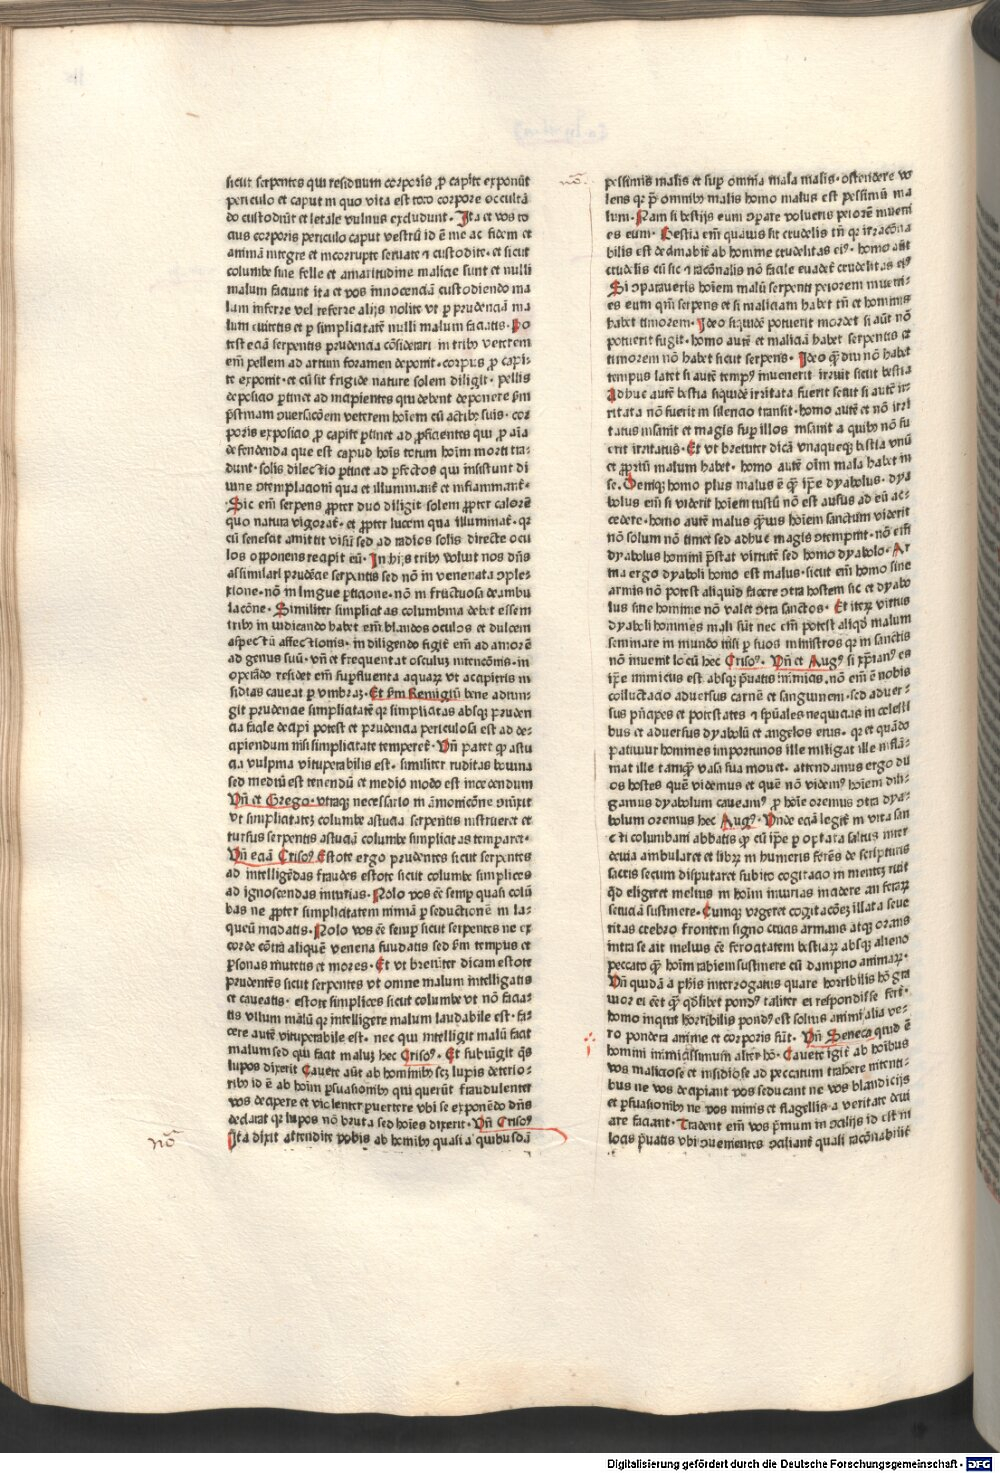 sicut serpentes qui residuum corporis p̱ capite exponūt
periculo et caput in quo vita est toto corpore occultā
do custodiūt et letale vulnus excludunt. Ita et vos to
cius corporis periculo caput vestrū id ē me ac fidem et
animā integre et incorrupte seruate ⁊ custodite. et sicut
columbe sine felle et amaritudine malicie sunt et nulli
malum faciunt ita et vos innocenciā custodiendo ma
lum inferre vel referre alijs nolite vt p prudenciā ma
lum euitetis et p simplicitatē nulli malum faciatis. Po
test eciā serpentis prudencia cōsiderari in tribꝰ veterem
em̄ pellem ad artum foramen deponit. corpus p̱ capi-
te exponit. et cū sit frigide nature solem diligit. pellis
deposicio ptinet ad incipientes qui debent deponere ẜm
pristinam ↄuersacōem veterem hoīem cū actibꝰ suis. cor
poris exposicio p̱ capite ptinet ad p̱ficientes qui p̱ aīa
defendenda que est capud hoīs totum hoīm morti tra-
dunt. solis dilectio ptinet ad pfectos qui insistunt di
uine ↄtemplacioni qua et illuminant̄ et inflammant̄.
Sic em̄ serpens ppter duo diligit solem ppter calorē
quo natura vigorat̄. et ppter lucem qua illuminat̄. qr
cū senescit amittit visū sed ad radios solis directe ocu
los opponens recipit eū. In hijs tribꝰ voluit nos dn̄s
assimilari prudēcie serpentis sed nō in venenata ↄple-
xione. nō in lingue pticione. nō in fructuosa deambu
lacōne. Similiter simplicitas columbina debet esse in
tribꝰ in iudicando habet em̄ blandos oculos et dulcem
aspectū affectionis. in diligendo figit em̄ ad amorē
ad genus suū. vn̄ et frequentat osculuꝫ intencōnis. in
operādo residet em̄ sup̱ fluenta aquaꝝ vt accipitris in
sidias caueat p vmbraꝫ. Et ẜm Remigiū bene adiun-
git prudencie simplicitatē qr simplicitas absqꝫ pruden
cia facile decipi potest et prudencia periculosa est ad de-
cipiendum nisi simplicitate temperet̄. Vn̄ patet ꝙ astu
cia vulpina vituperabilis est. similiter ruditas bouina
sed mediū est tenendū et medio modo est incedendum
Vn̄ et Grego. vtraqꝫ necessario in āmonicōne ↄiūxit
vt simplicitateꝫ columbe astucia serpentis instrueret et
rursus serpentis astuciā columbe simplicitas temperaret.
Vn̄ eciā Crisoꝰ Estote ergo prudentes sicut serpentes
ad intelligēdas fraudes estote sicut columbe simplices
ad ignoscendas iniurias. Nolo vos eē semp quasi colū
bas ne ppter simplicitatem nimiā p seductionē in la-
queū incidatis. Nolo vos eē semp sicut serpentes ne ex
corde cōtra aliquē venena fundatis sed ẜm tempus et
psonas mutetis et mores. Et vt breuiter dicam estote
prudentes sicut serpentes vt omne malum intelligatis
et caueatis. estote simplices sicut columbe vt nō facia-
tis vllum malū qr intelligere malum laudabile est. fa-
cere autē vituperabile est. nec qui intelligit malū facit
malum sed qui facit maluꝫ hec Crisoꝰ. Et subiūgit q̄s
lupos dixerit Cauete aūt ab hominibꝰ scꝫ lupis deterio-
ribꝰ id ē ab hoīm psuasionibꝰ qui querūt fraudulenter
vos decipere et violenter puertere vbi se exponēdo dn̄s
declarat qr lupos nō bruta sed hoīes dixerit. Vn̄ Crisoꝰ
Ita dixit attendite vobis ab homibꝰ quasi a quibusdā
nō
nō.
pessimis malis et sup omīa mala malis. ostendere vo
lens qr p̄ omnibꝰ malis homo malus est pessimū ma
lum. Nam si bestijs eum ↄpare volueris peiorē inueni
es eum. Bestia em̄ quāuis sit crudelis tn̄ qr irracōna
bilis est declinabit̄ ab homine crudelitas eiꝰ. homo aūt
crudelis cū sit ⁊ racōnalis nō facile euadet̄ crudelitas eiꝰ
Si ↄparaueris hoīem malū serpenti peiorem inueni-
es eum qm̄ serpens et si maliciam habet tn̄ et hominis
habet timorem. Ideo siquidē potuerit mordet si aūt nō
potuerit fugit. homo autē et maliciā habet serpentis et
timorem nō habet sicut serpens. Ideo q̄ diu nō habet
tempus latet si autē tempꝰ inuenerit irruit sicut bestia
Adhuc autē bestia siquidē irritata fuerit seuit si autē ir-
ritata nō fuerit in silencio transit. homo autē et nō irri
tatus insanit et magis sup illos insanit a quibꝰ nō fu
erit irritatus. Et vt breuiter dicā vnaqueqꝫ bestia vnū
et p̱priū malum habet. homo autē oīm mala habet in
se. Deniqꝫ homo plus malus ē q̄ ip̄e dyabolus. dya
bolus em̄ si viderit hoīem iustū nō est ausus ad eū ac-
cedere. homo autē malus q̄uis hoīem sanctum viderit
nō solum nō timet sed adhuc magis ↄtempnit. nō em̄
dyabolus homini p̄stat virtutē sed homo dyabolo. Ar
ma ergo dyaboli homo est malus. sicut em̄ homo sine
armis nō potest aliquid facere ↄtra hostem sic et dyabo
lus sine homine nō valet ↄtra sanctos. Et iteꝝ virtus
dyaboli homines mali sūt nec em̄ potest aliqd̄ malum
seminare in mundo nisi p suos ministros qr in sanctis
nō inuenit locū hec Crisoꝰ. Vn̄ et Augꝰ si xp̄ianꝰ es
ip̄e inimicus est absqꝫ p̄uatis inimicis. nō em̄ ē nobis
colluctacio aduersus carnē et sanguinem. sed aduer-
sus p̄ncipes et potestates ⁊ sp̄uales nequicias in celesti
bus et aduersus dyabolū et angelos eius. qr et quādo
patimur hommes importunos ille instigat ille inflā-
mat ille tamq̄ vasa sua mouet. attendamus ergo du
os hostes quē videmus et quē nō videmꝰ hoīem dili-
gamus dyabolum caueamꝰ p̱ hoīe oremus ↄtra dya-
bolum oremus hec Augꝰ. Vnde eciā legit̄ in vita san
cti columbani abbatis ꝙ cū ip̄e p optata saltus inter
deuia ambularet et libꝝ in humeris ferēs de scripturis
sacris secum disputaret subito cogitacio in menteꝫ ruit
qd̄ eligeret melius in hoīm iniurias incidere an feraꝝ
seuiciā sustinere. Cumqꝫ vrgeret cogitacōeꝫ illata seue
ritas crebro frontem signo crucis armans atqꝫ orans
intra se ait melius eē ferocitatem bestiaꝝ absqꝫ alieno
peccato q̄ hoīm rabiem sustinere cū dampno animaꝝ.
Vn̄ quidā a ph̄is interrogatus quare horribilis hō gra
uior ei eēt q̄ qdlibet pondꝰ taliter ei respondisse fert̄.
homo inquit horribilis pondꝰ est solius animi alia ve-
ro pondera anime et corporis sūt. Vn̄ Seneca quid ē
homini inimicissimum alter hō. Cauete igit̄ ab hoībus
vos maliciose et insidiose ad peccatum trahere nitenti-
bus ne vos decipiant vos seducant ne vos blandicijs
et psuasionibꝰ ne vos minis et flagellis a veritate deui
are faciant. Tradent em̄ vos p̄mum in ↄcilijs id est in
locis p̄uatis vbi ↄuenientes ↄciliant̄ quali racōnabilit̄
Digitalisierung gefördert durch die Deutsche Forschungsgemeinschaft - DFG